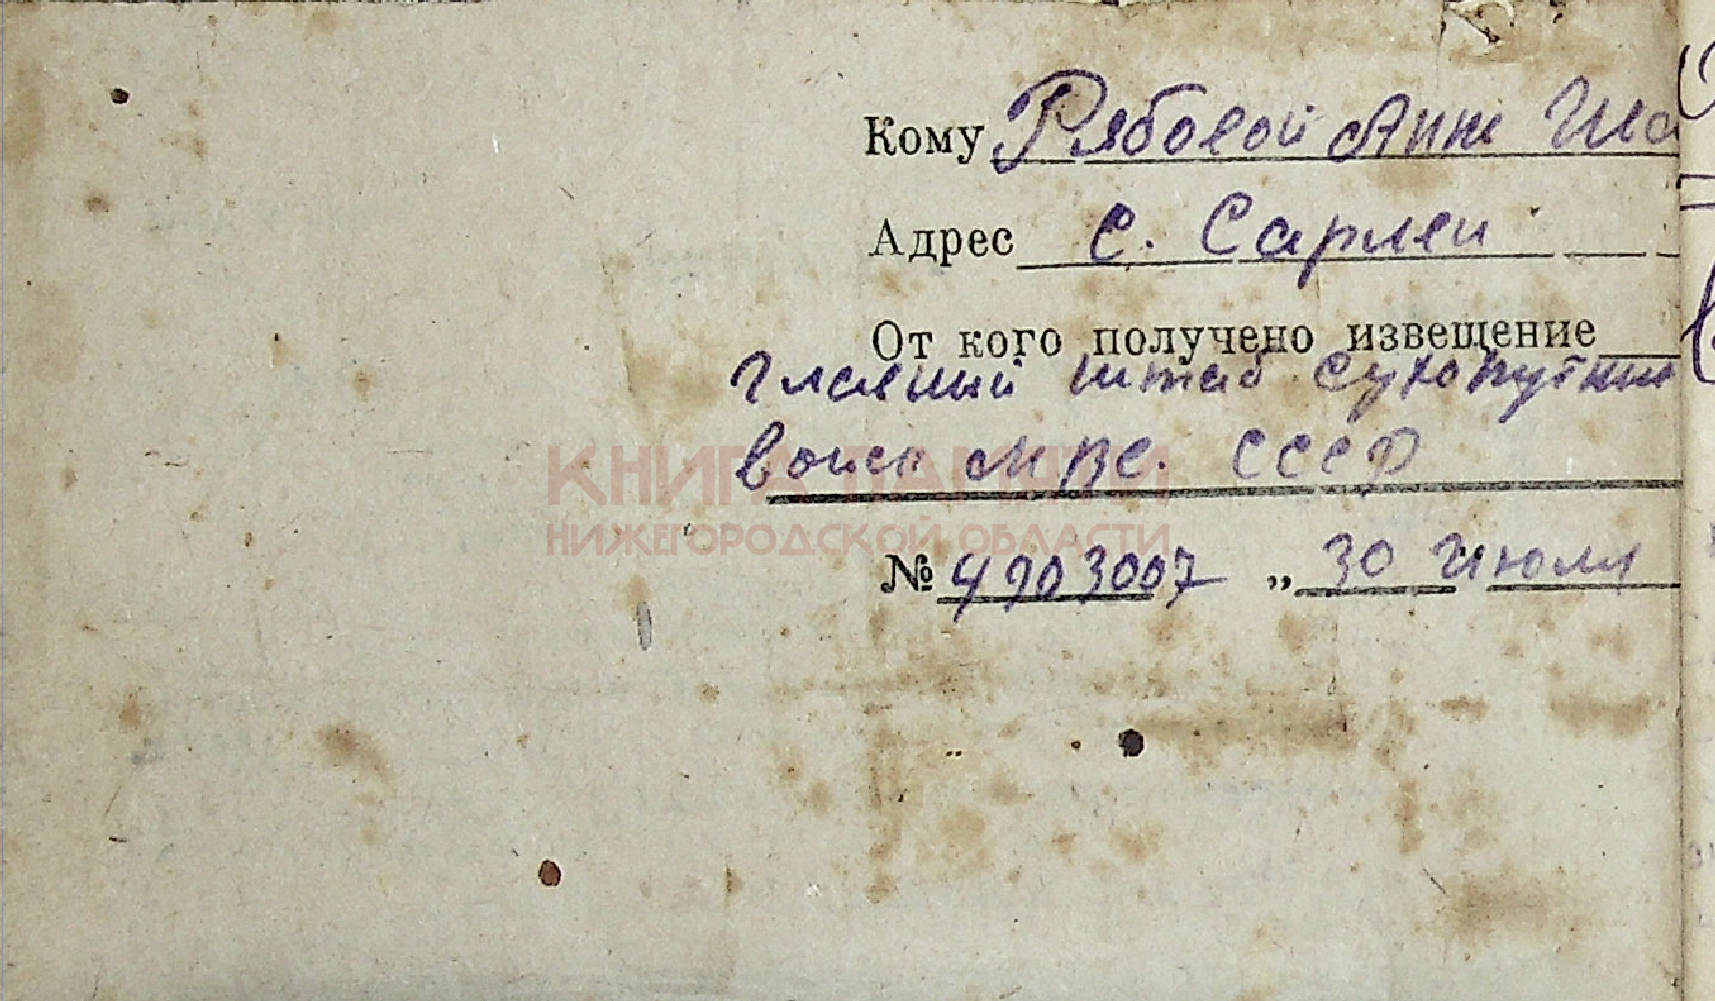 Кому Рябовой Анне
Адрес с. Сарлеи
От кого получено извещение
главный штаб сухопутных
войск МВС. СССР
КНИГА ПАМЯТИ
НИЖЕГОРОДСКОЙ ОБЛАСТИ
№ 4903007 „ 30 Июля